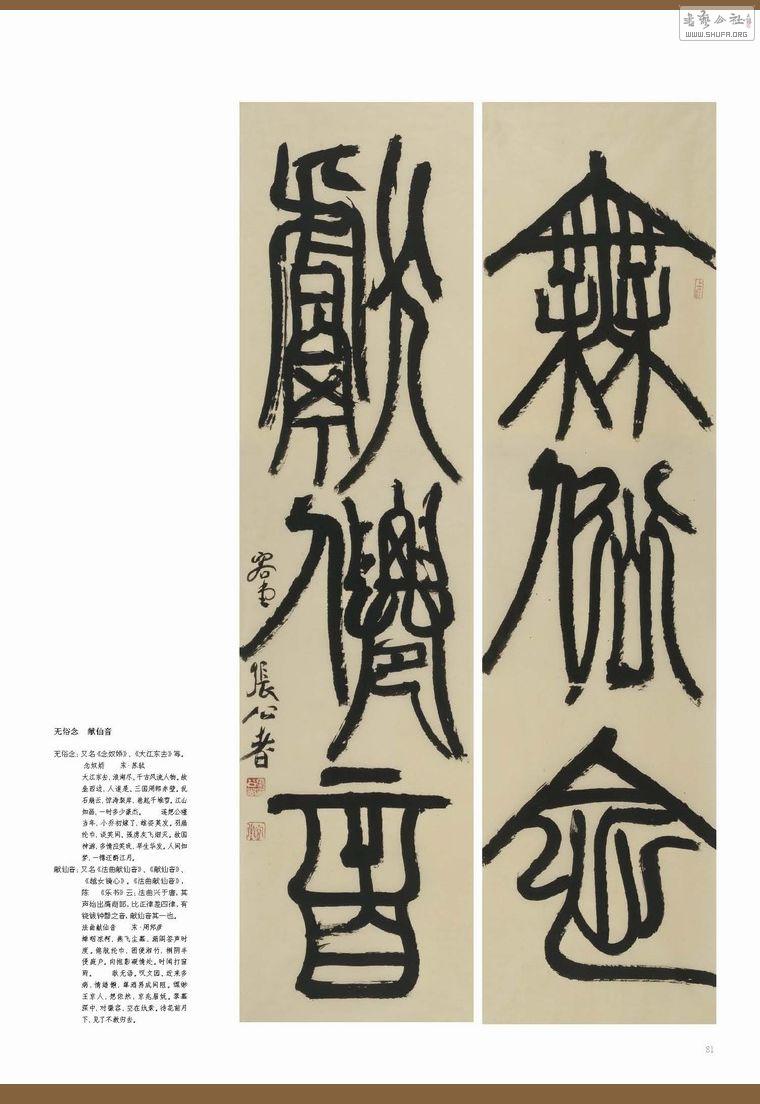 書藝公社
WWW.SHUFA.ORG
無俗念
獻僊音
容堂
張公者
无俗念 献仙音
无俗念：又名《念奴娇》、《大江东去》等。
念奴娇 宋·苏轼
大江东去，浪淘尽，千古风流人物。故
垒西边，人道是，三国周郎赤壁。乱
石崩云，惊涛裂岸，卷起千堆雪。江山
如画，一时多少豪杰。 遥想公瑾
当年，小乔初嫁了，雄姿英发。羽扇
纶巾，谈笑间，强虏灰飞烟灭。故国
神游，多情应笑我，早生华发。人间如
梦，一樽还酹江月。
献仙音：又名《法曲献仙音》、《献仙音》、
《越女镜心》。《法曲献仙音》，
陈 《乐书》云：法曲兴于唐，其
声始出清商部，比正律差四律，有
铙钹钟磬之音，献仙音其一也。
法曲献仙音 宋·周邦彦
蝉咽凉柯，燕飞尘幕，漏阁签声时
度。倦脱纶巾，困便湘竹，桐阴半
侵庭户。向抱影凝情处，时闻打窗
雨。 耿无语。叹文园、近来多
病，情绪懒，尊酒易成间阻。缥缈
玉京人，想依然、京兆眉妩。翠幕
深中，对徽容、空在纨素。待花前月
下，见了不教归去。
81